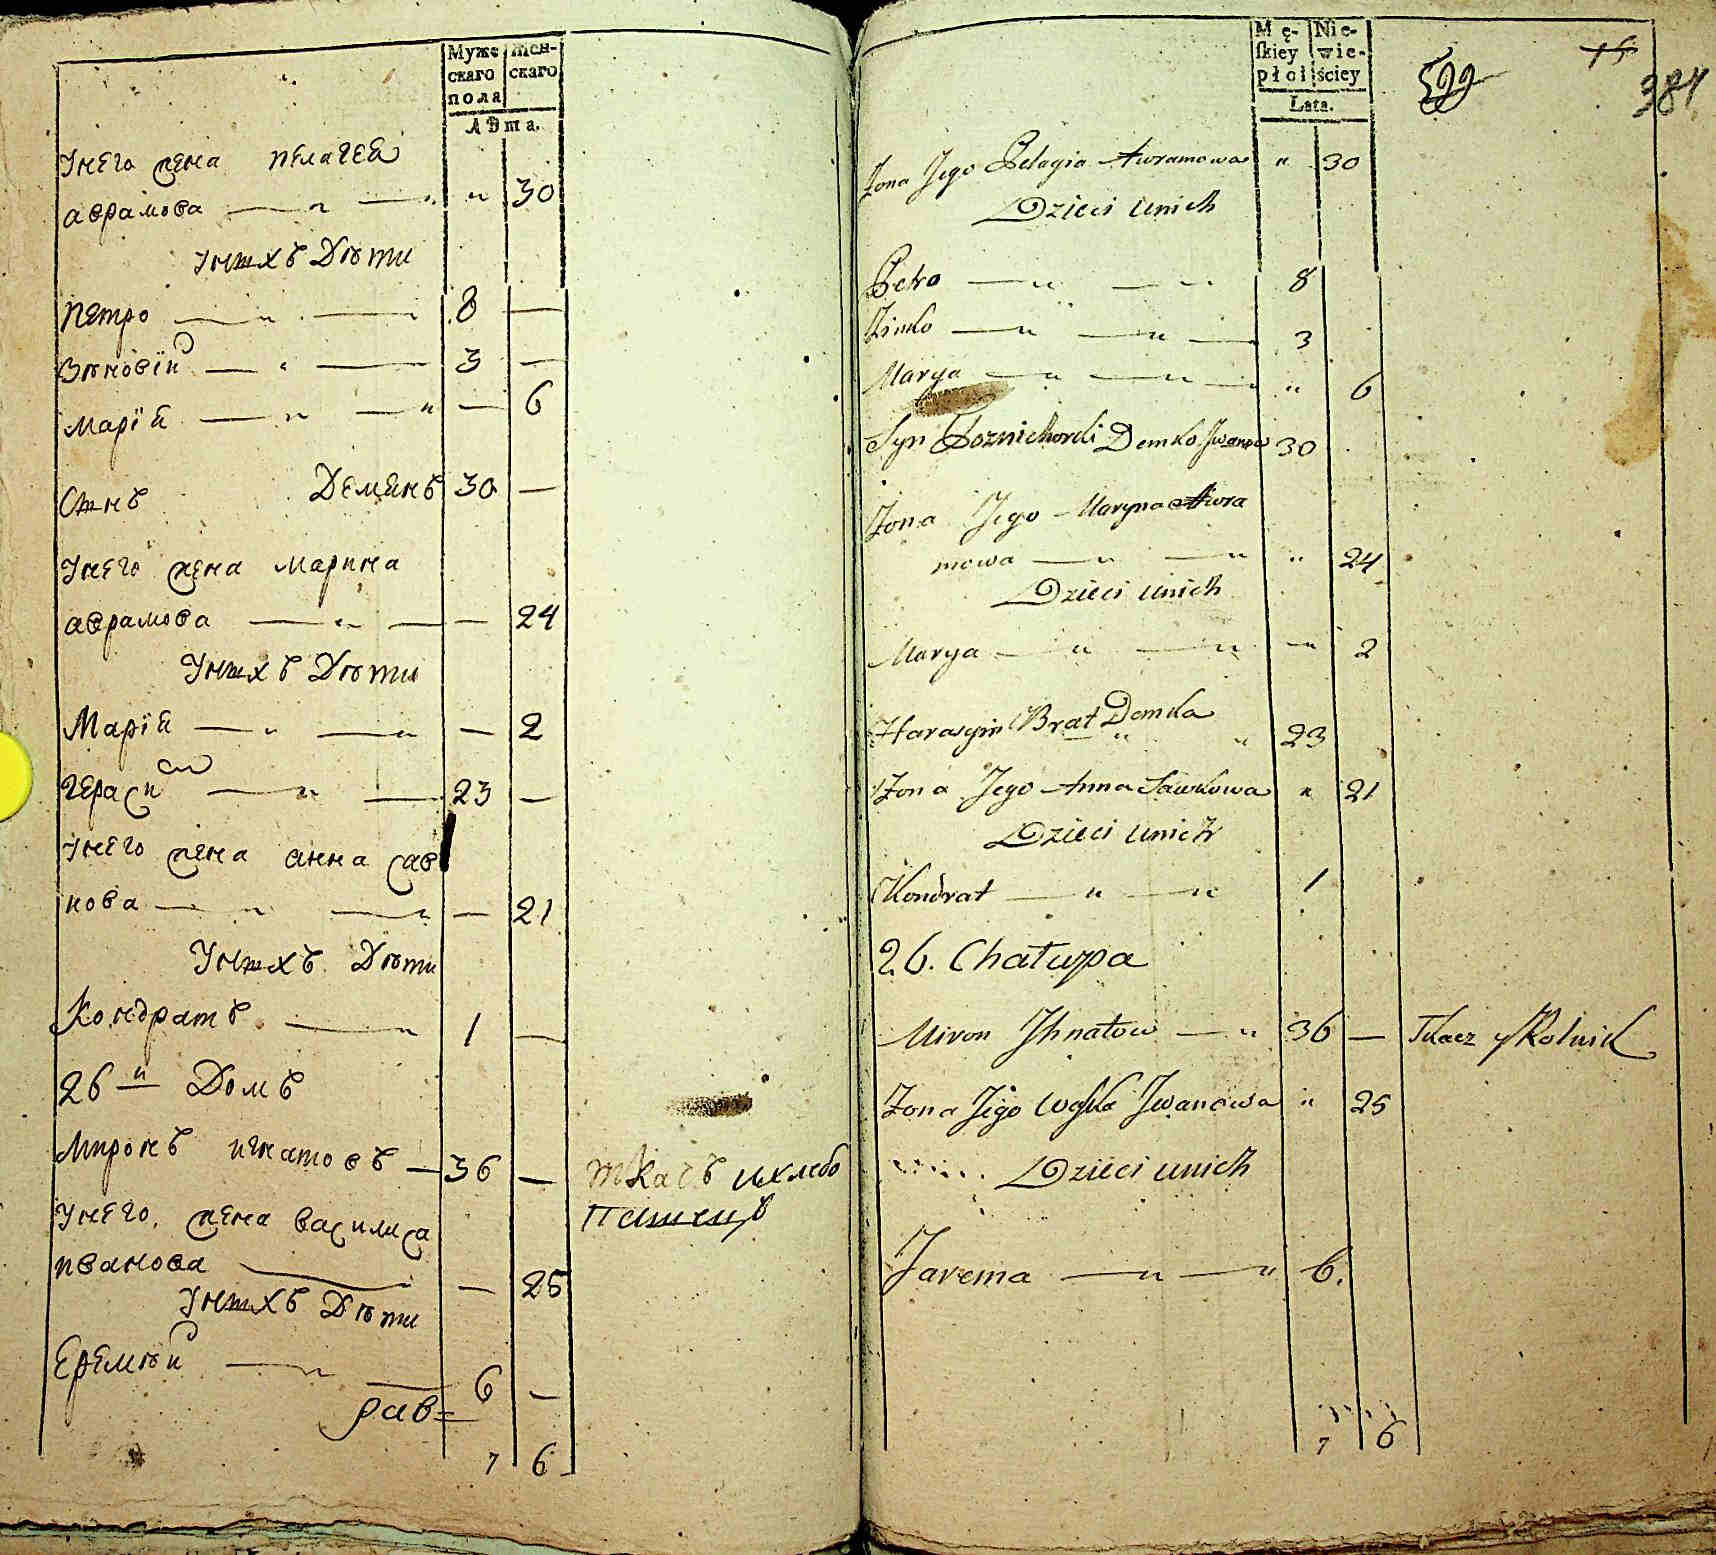 Муже скаго пола
Жен- скаго
Лѣта.
Унего жена пелагея
аврамова 30
Унихъ Дѣти
Петро 8 —
Зѣновiй 3 —
Марiя — 6
Сынъ Демянъ 30 —
Унего жена марина
аврамова — 24
Унихъ Дѣти
Марiя — 2
герасим 23 —
Унего жена анна сав
кова — 21
Унихъ Дѣти
Кондратъ 1 —
26 й Домъ
Миронъ игнатовъ 36 — ткачъ ихлебо
пашецъ
Унего жена василиса
иванова — 25
Унихъ Дѣти
Еремѣй 6 —
7 6
Mę- ſkiey płci
Nie- wie- ściey
Lata.
15
384
Żona Jego Pelagia Awramowa " 30
Dzieci unich
Petro 8
Zinko 3
Marya " 6
Syn Demko Iwanow 30
Żona Jego Maryna Awra
mowa " 24
Dzieci unich
Marya " 2
Harasym Brat Demka 23
Żona Jego Anna Sawkowa " 21
Dzieci unich
Kondrat 1
26. Chałupa
Miron Ihnatow 36 — Tkacz y Rolnik
Żona Jego Waſka Iwanowa " 25
Dzieci unich
Jarema 6.
7 6